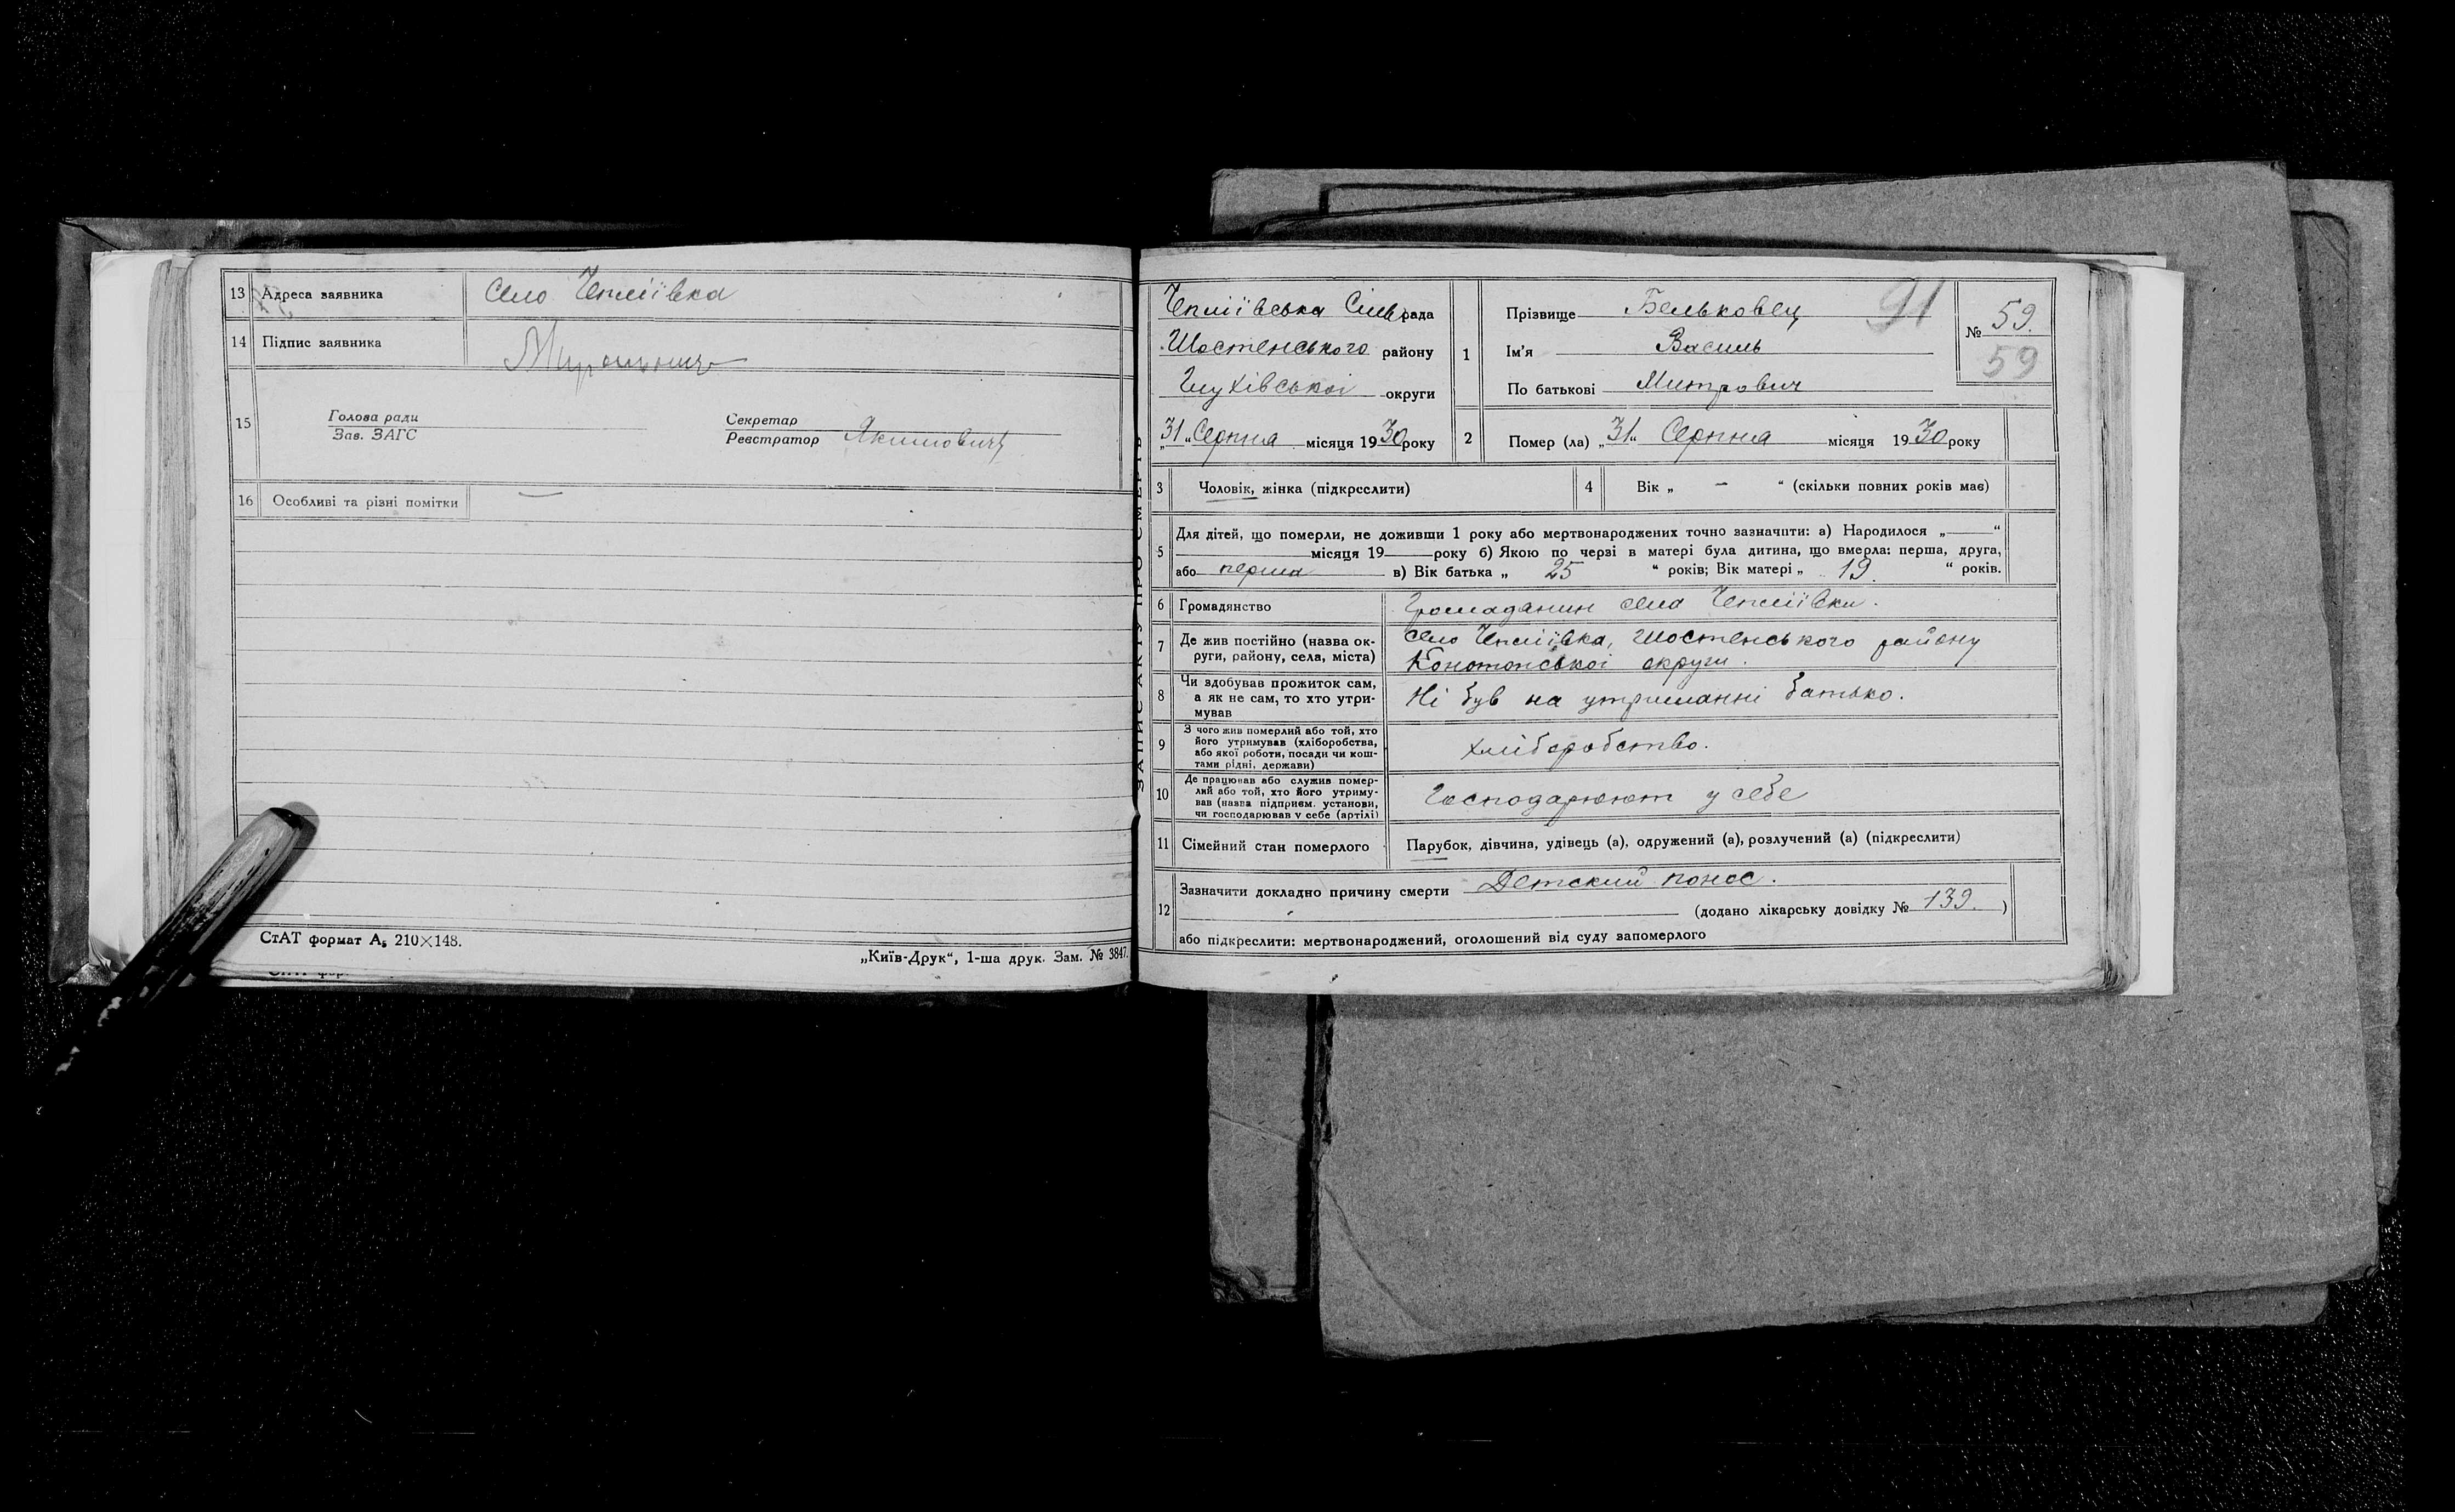 13 Адреса заявника Село Чепліївка
14 Підпис заявника
15 Голова ради Зав. ЗАГС Секретар Реєстратор Якимович
16 Особливі та різні помітки —
СтАТ формат А₅ 210×148.
„Київ-Друк“, 1-ша друк. Зам. № 3847.
ЗАПИС АКТУ ПРО СМЕРТЬ
Чепліївська Сільрада
Шостенського району
Глухівської округи
„31 „ Серпня місяця 1930 року
1 Прізвище Бельковец
Ім'я Василь
По батькові Митрович
91
№ 59.
59
2 Помер (ла) „31“ Серпня місяця 1930 року
3 Чоловік, жінка (підкреслити)
4 Вік „ — “ (скільки повних років має)
5 Для дітей, що померли, не доживши 1 року або мертвонароджених точно зазначити: а) Народилося „—“
місяця 19—року б) Якою по черзі в матері була дитина, що вмерла: перша, друга,
або перша в) Вік батька „ 25 “ років; Вік матері „ 19. “ років.
6 Громадянство Громаданин села Чепліївки.
7 Де жив постійно (назва округи, району, села, міста) село Чепліївка, Шостенського району
Конотопської округи.
8 Чи здобував прожиток сам,
а як не сам, то хто утри-
мував Ні був на утриманні батько.
9 З чого жив померлий або той, хто
його утримував (хліборобства,
або якої роботи, посади чи кош-
тами рідні, держави) хліборобство.
10 Де працював або служив помер-
лий або той, хто його утриму-
вав (назва підприєм. установи,
чи господарював у себе (артілі) Господарюют у себе
11 Сімейний стан померлого Парубок, дівчина, удівець (а), одружений (а), розлучений (а) (підкреслити)
12 Зазначити докладно причину смерти Детский понос.
(додано лікарську довідку № 139. )
або підкреслити: мертвонароджений, оголошений від суду запомерлого